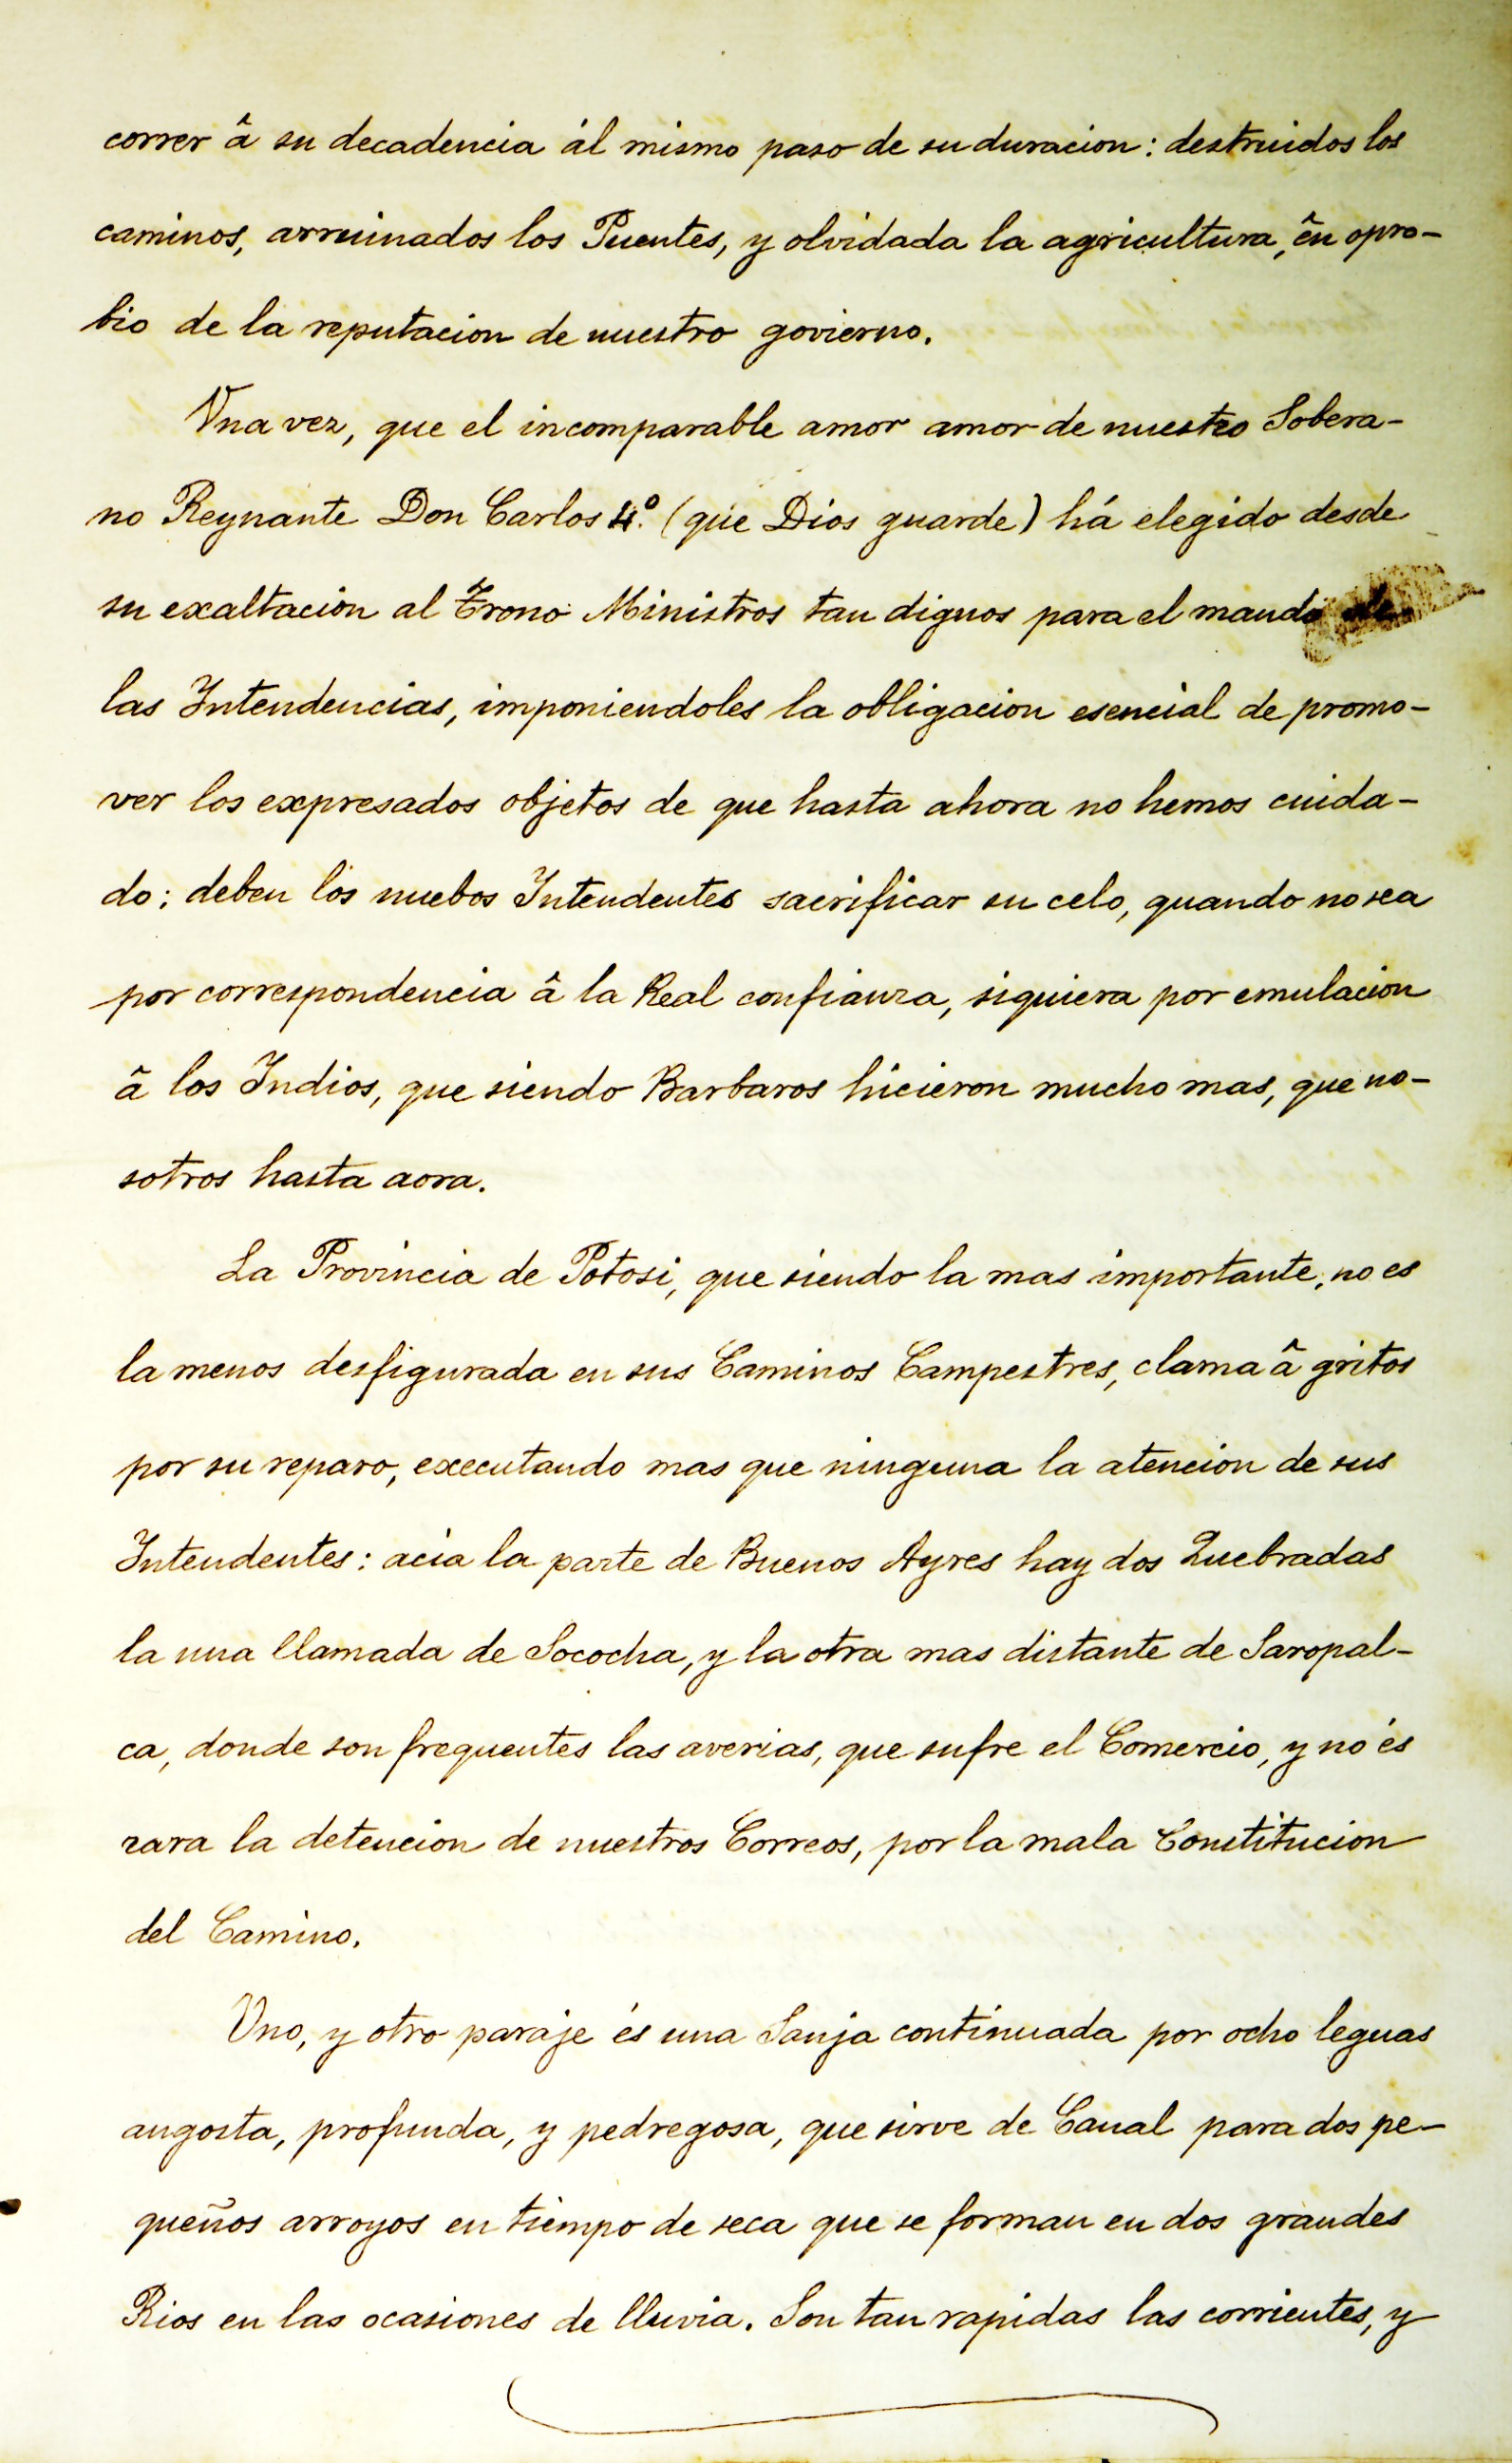 correr â su decadencia ál mismo paso de su duracion: destruidos los
caminos, arruinados los Puentes, y olvidada la agricultura, ên opro-
bio de la reputacion de nuestro govierno.
Vna vez, que el incomparable amor amor de nuestro Sobera-
no Reynante Don Carlos 4º. (que Dios guarde) há elegido desde
su exaltacion al Trono Ministros tan dignos para el mando de
las Intendencias, imponiendoles la obligacion esencial de promo-
ver los expresados objetos de que hasta ahora no hemos cuida-
do; deben los nuebos Intendentes sacrificar su celo, quando no sea
por correspondencia â la Real confianza, siquiera por emulacion
â los Indios, que siendo Barbaros hicieron mucho mas, que no-
sotros hasta aora.
La Provincia de Potosi, que siendo la mas importante, no es
la menos desfigurada en sus Caminos Campestres, clama â gritos
por su reparo, executando mas que ninguna la atencion de sus
Intendentes: acia la parte de Buenos Ayres hay dos Quebradas
la una llamada de Sococha, y la otra mas distante de Saropal-
ca, donde son frequentes las averias, que sufre el Comercio, y no és
rara la detencion de nuestros Correos, por la mala Constitucion
del Camino.
Vno, y otro paraje és una Sanja continuada por ocho leguas
angosta, profunda, y pedregosa, que sirve de Canal para dos pe-
queños arroyos en tiempo de seca que se forman en dos grandes
Rios en las ocasiones de lluvia. Son tan rapidas las corrientes, y